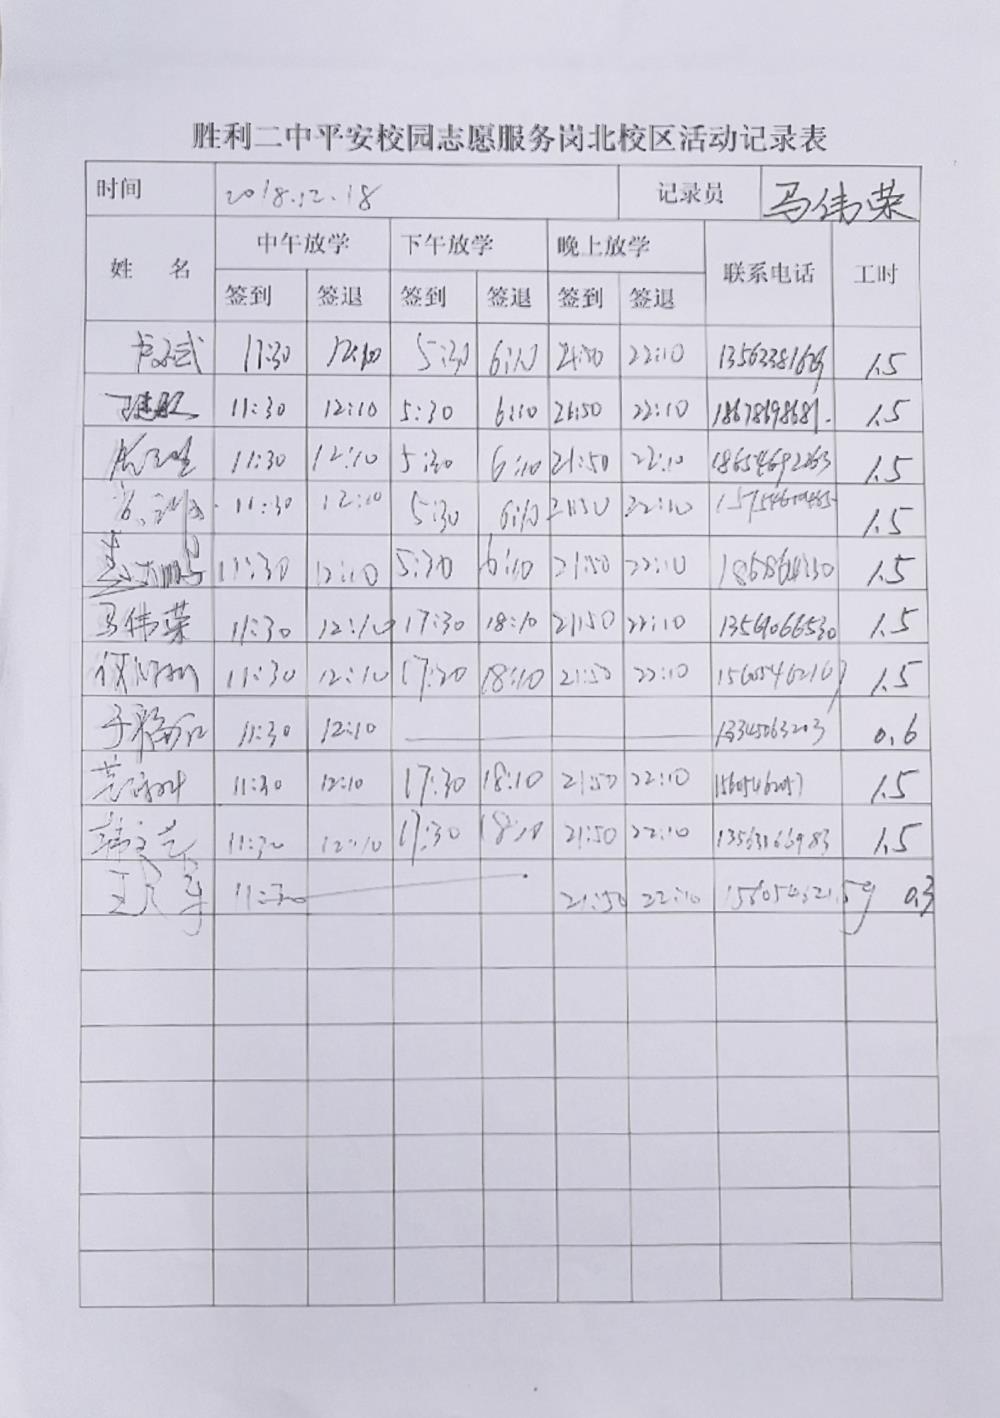 胜利二中平安校园志愿服务岗北校区活动记录表
时间 2018.12.18 记录员 马伟荣
姓 名 中午放学 下午放学 晚上放学 联系电话 工时
签到 签退 签到 签退 签到 签退
11:30 12:10 5:30 6:10 21:50 22:10 1.5
11:30 12:10 5:30 6:10 21:50 22:10 1.5
11:30 12:10 5:30 6:10 21:50 22:10 18654692263 1.5
11:30 12:10 5:30 6:10 21:50 22:10 1.5
11:30 12:10 5:30 6:10 21:50 22:10 1.5
马伟荣 11:30 12:10 17:30 18:10 21:50 22:10 13561066530 1.5
11:30 12:10 17:30 18:10 21:50 22:10 1.5
11:30 12:10 13345063203 0.6
11:30 12:10 17:30 18:10 21:50 22:10 15605462057 1.5
11:30 12:10 17:30 18:10 21:50 22:10 1.5
11:30 21:50 22:10 0.3